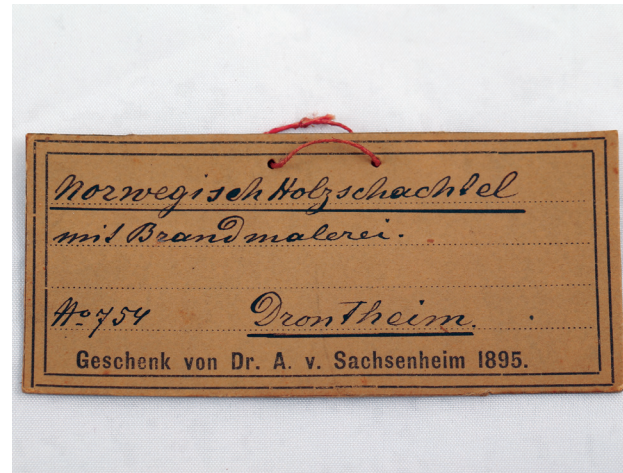 Norwegisch Holzschachtel
mit Brandmalerei.
No 754 Drontheim.
Geschenk von Dr. A. v. Sachsenheim 1895.